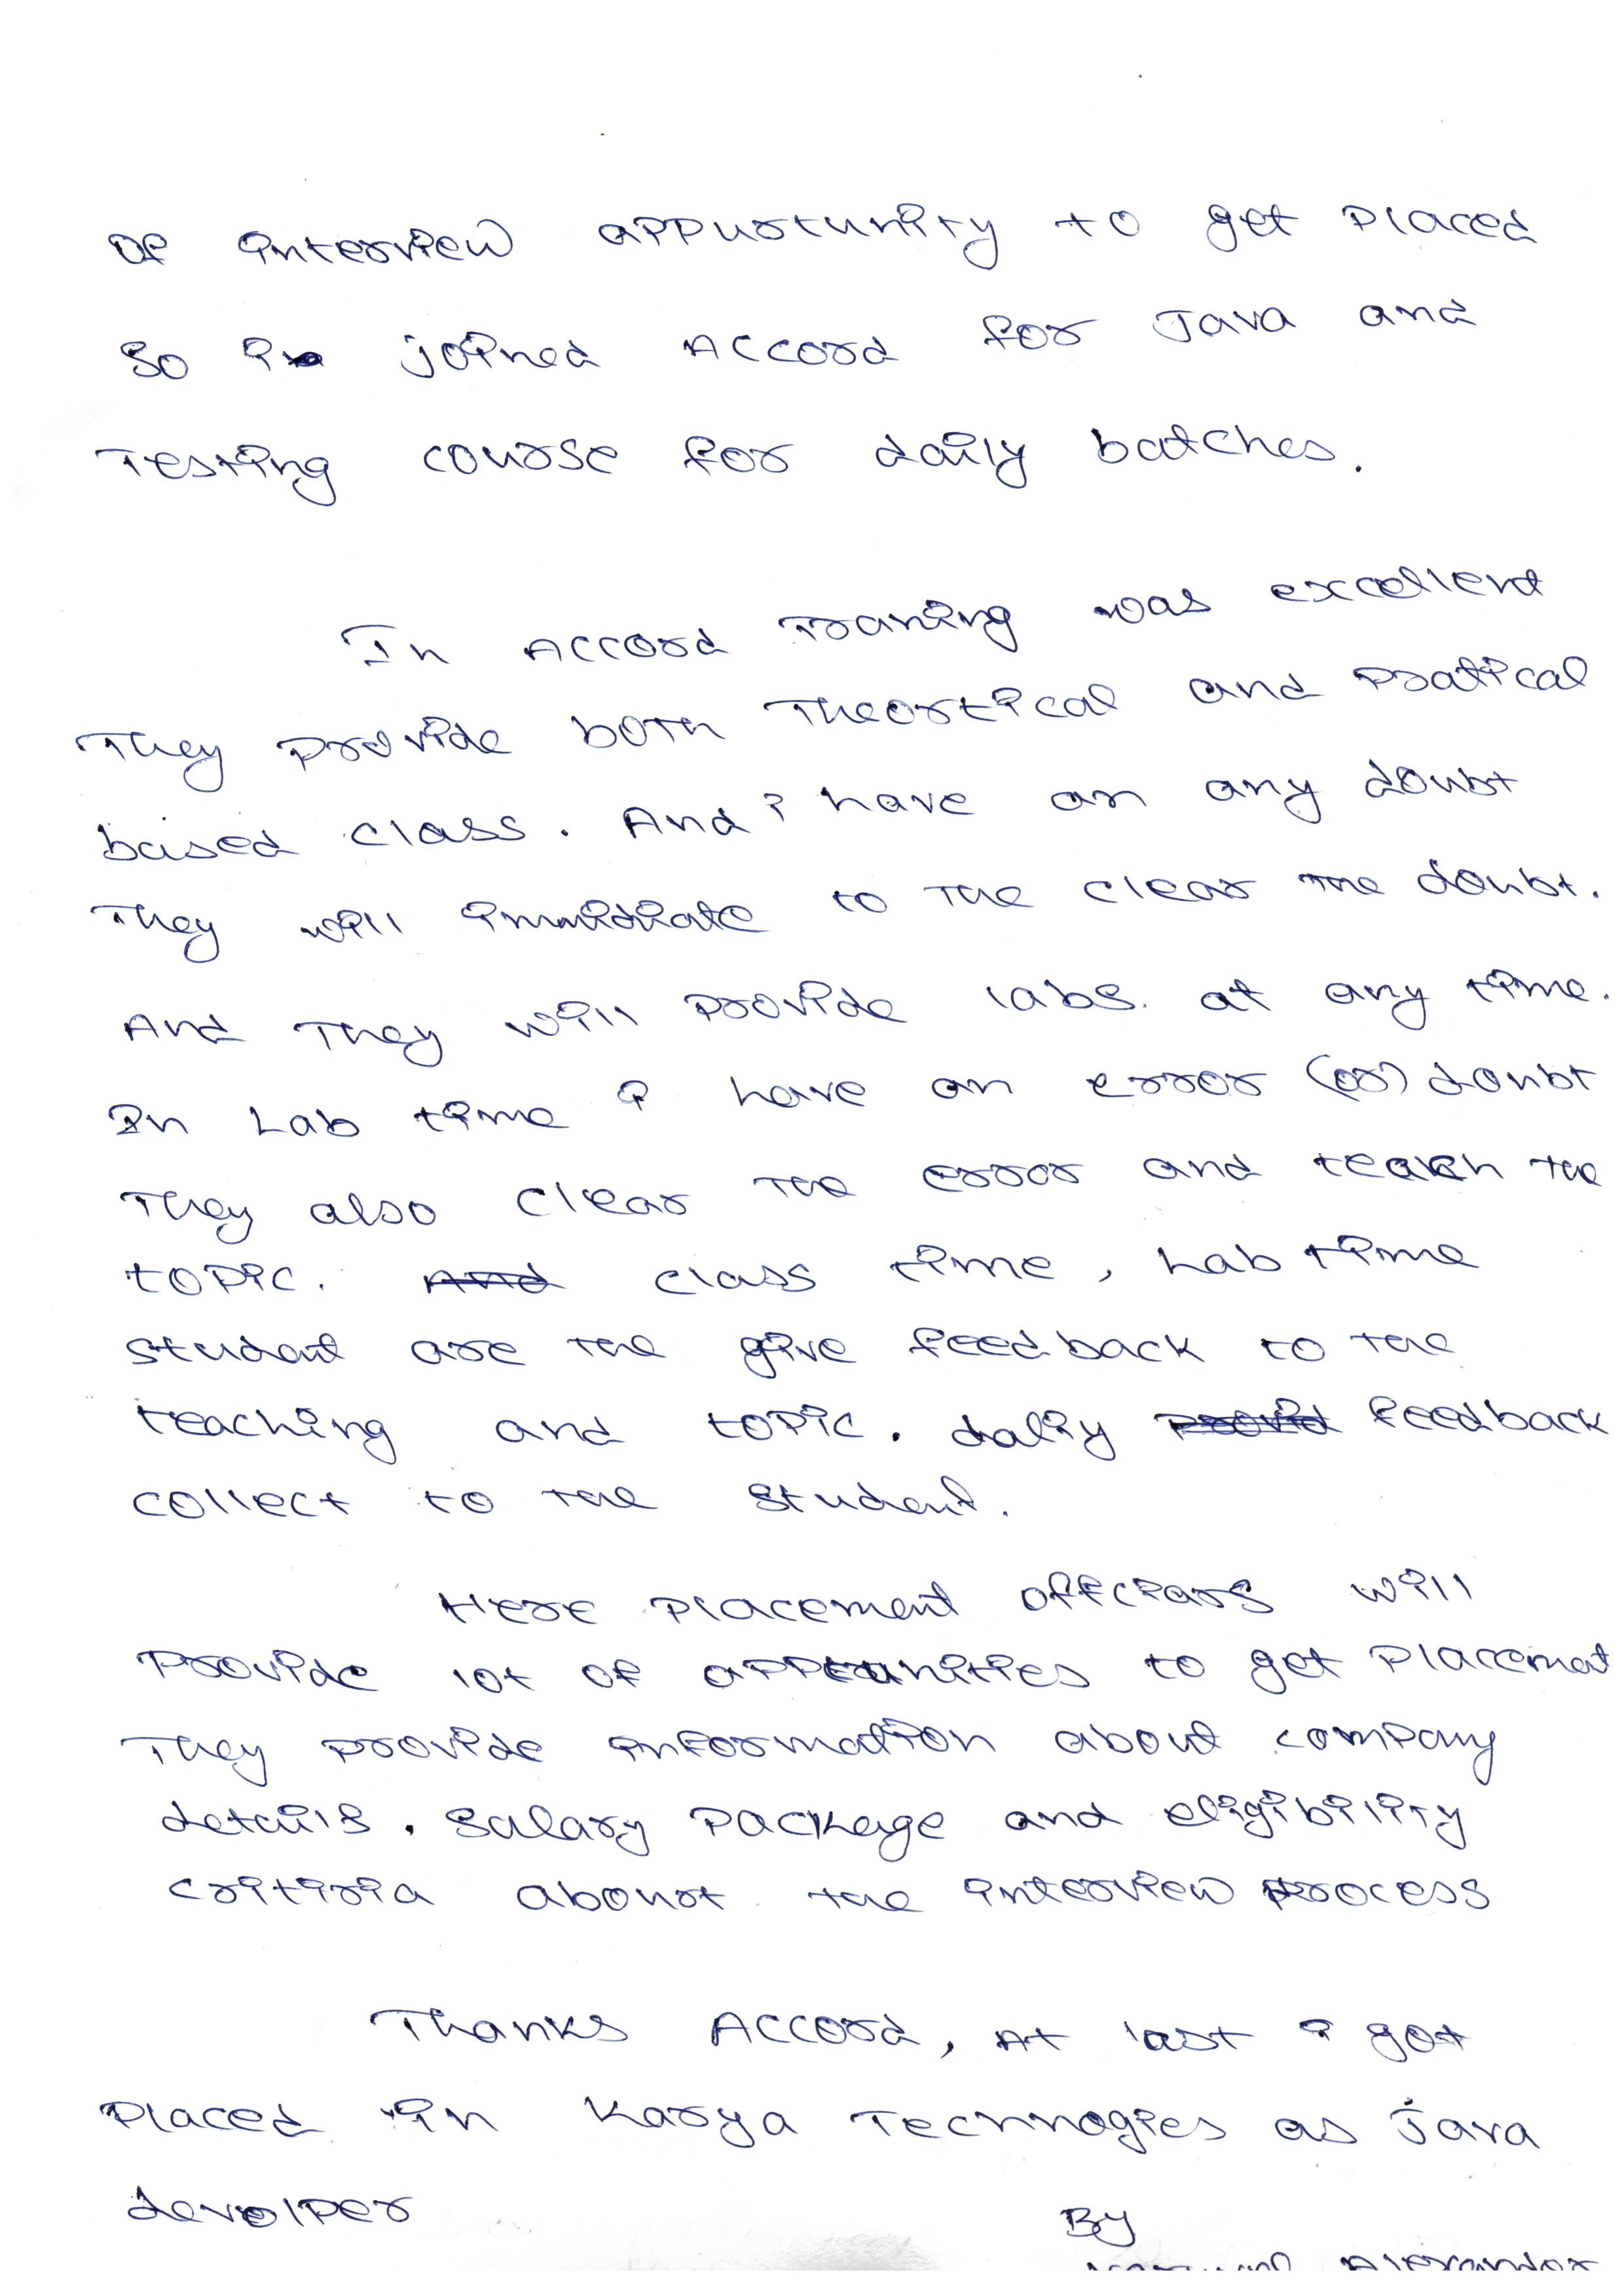 of interview appurtunity to get placed
So i joined Accord for Java and
Testing course for daily batches.
In Accord Traning was excellent
They provide both Theortical and pratical
based class. And i have an any doubt
They will immidiate to the clear the doubt.
And They will provide labs. at any time.
In Lab time i have an error (or) doubt
They also clear the error and teach the
topic. And class time, Lab time
student are the give feedback to the
teaching and topic. daliy provid feedback
collect to the student.
Here placement offciars will
provide lot of apptunities to get placement
They provide information about company
details. Salary package and eligibility
critiria abourt the interview process
Thanks Accord, At last i got
placed in Karya Technogies as Java
devolper
By
Alexander